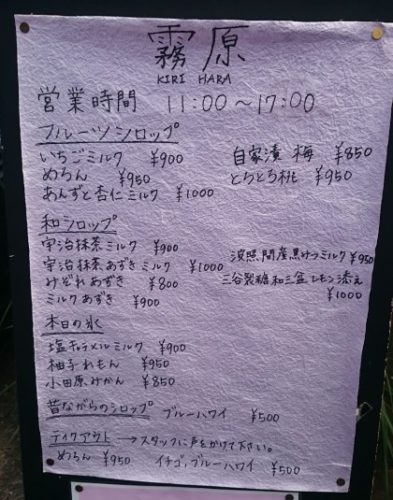 霧原
KIRI HARA
営業時間 11:00〜17:00
フルーツシロップ
いちごミルク ¥900
めろん ¥950
あんずと杏仁ミルク ¥1000
自家漬 梅 ¥850
とろとろ桃 ¥950
和シロップ
宇治抹茶ミルク ¥900
宇治抹茶あずきミルク ¥1000
みぞれあずき ¥800
ミルクあずき ¥900
波照間産黒みつミルク ¥950
三谷製糖和三盆レモン添え
¥1000
本日の氷
塩キャラメルミルク ¥900
柚子れもん ¥950
小田原みかん ¥850
昔ながらのシロップ ブルーハワイ ¥500
テイクアウト →スタッフに声をかけて下さい。
めろん ¥950 イチゴ,ブルーハワイ ¥500